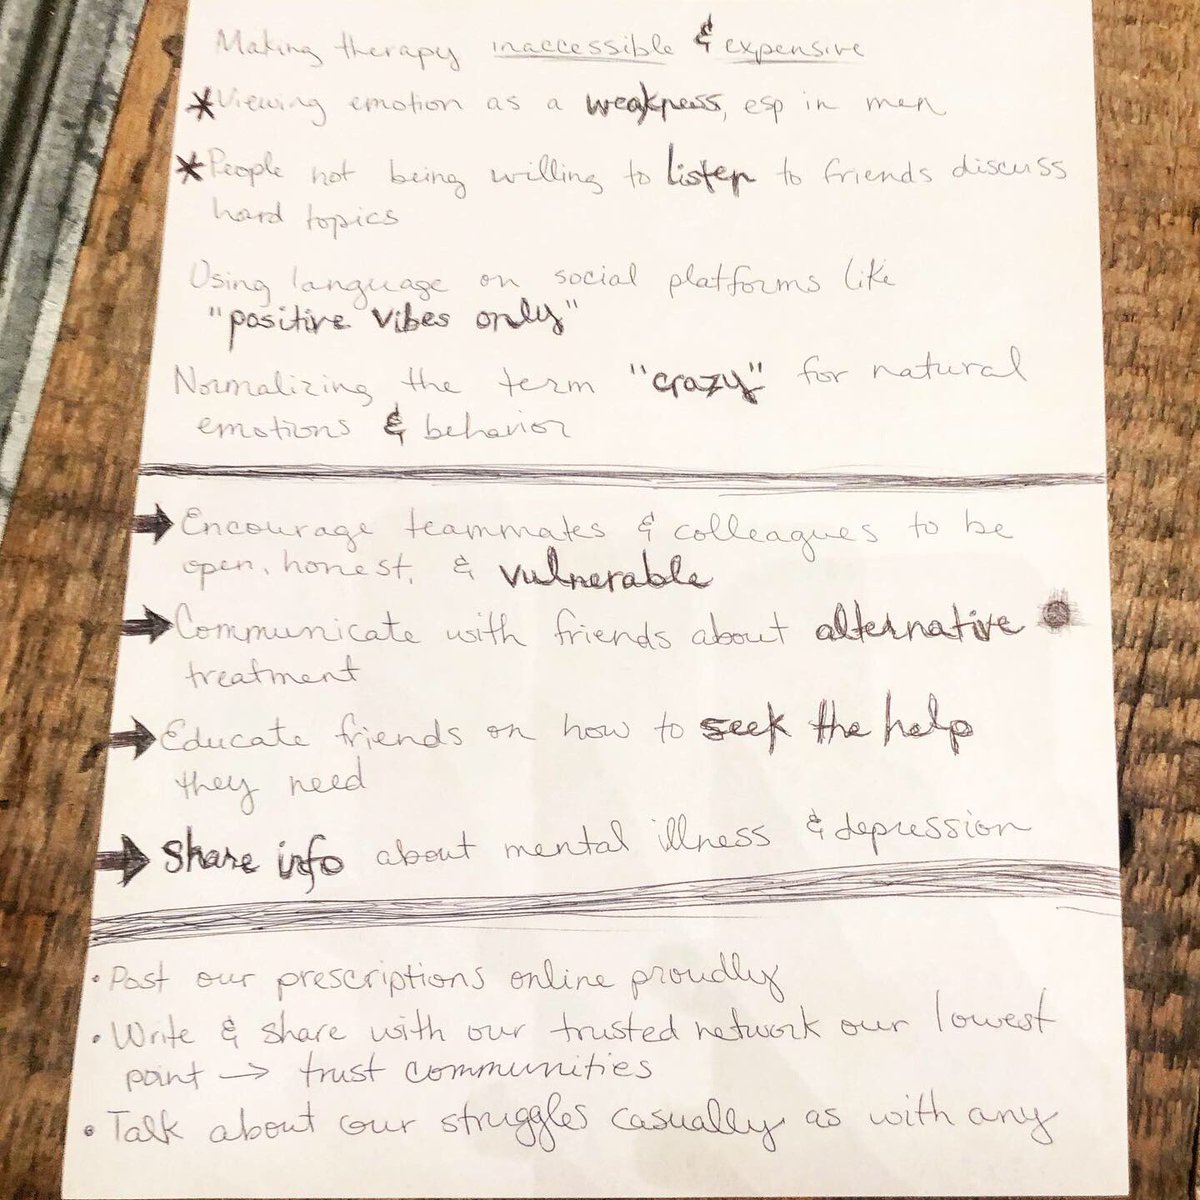 Making therapy inaccessible & expensive
*Viewing emotion as a weakness, esp in men
*People not being willing to listen to friends discuss
hard topics
Using language on social platforms like
"positive vibes only"
Normalizing the term "crazy" for natural
emotions & behavior
→ Encourage teammates & colleagues to be
open, honest, & vulnerable
→ Communicate with friends about alternative
treatment
→ Educate friends on how to seek the help
they need
→ Share info about mental illness & depression
• Post our prescriptions online proudly
• Write & share with our trusted network our lowest
point → trust communities
• Talk about our struggles casually as with any